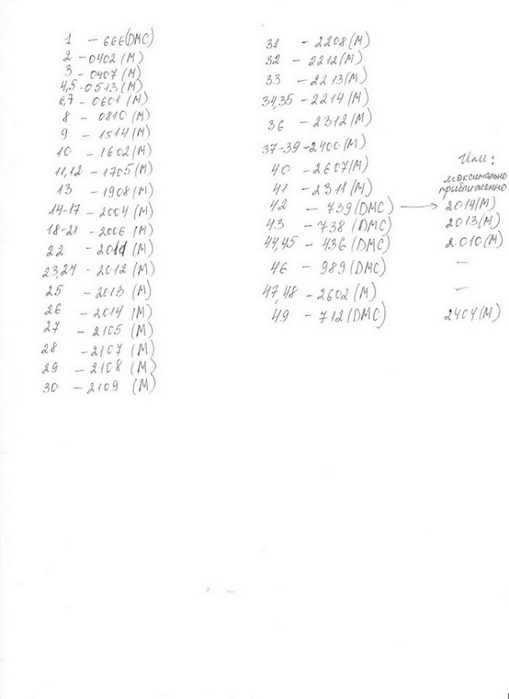 1 - 666(DMC)
2 - 0402 (M)
3 - 0407 (M)
4,5 - 0513 (M)
6,7 - 0601 (M)
8 - 0810 (M)
9 - 1514 (M)
10 - 1602 (M)
11,12 - 1705 (M)
13 - 1908 (M)
14-17 - 2004 (M)
18-21 - 2006 (M)
22 - (M)
23,24 - 2012 (M)
25 - 2013 (M)
26 - 2014 (M)
27 - 2105 (M)
28 - 2107 (M)
29 - 2108 (M)
30 - 2109 (M)
31 - 2208 (M)
32 - 2212 (M)
33 - 2213 (M)
34,35 - 2214 (M)
36 - 2312 (M)
37-39 - 2400 (M)
40 - 2607 (M)
41 - 2311 (M)
42 - 739 (DMC) →
43 - 738 (DMC)
44,45 - 436 (DMC)
46 - 989 (DMC)
47,48 - 2602 (M)
49 - 712 (DMC)
Или:
максимально
приближенно
2014(M)
2013(M)
2010(M)
-
-
2404(M)